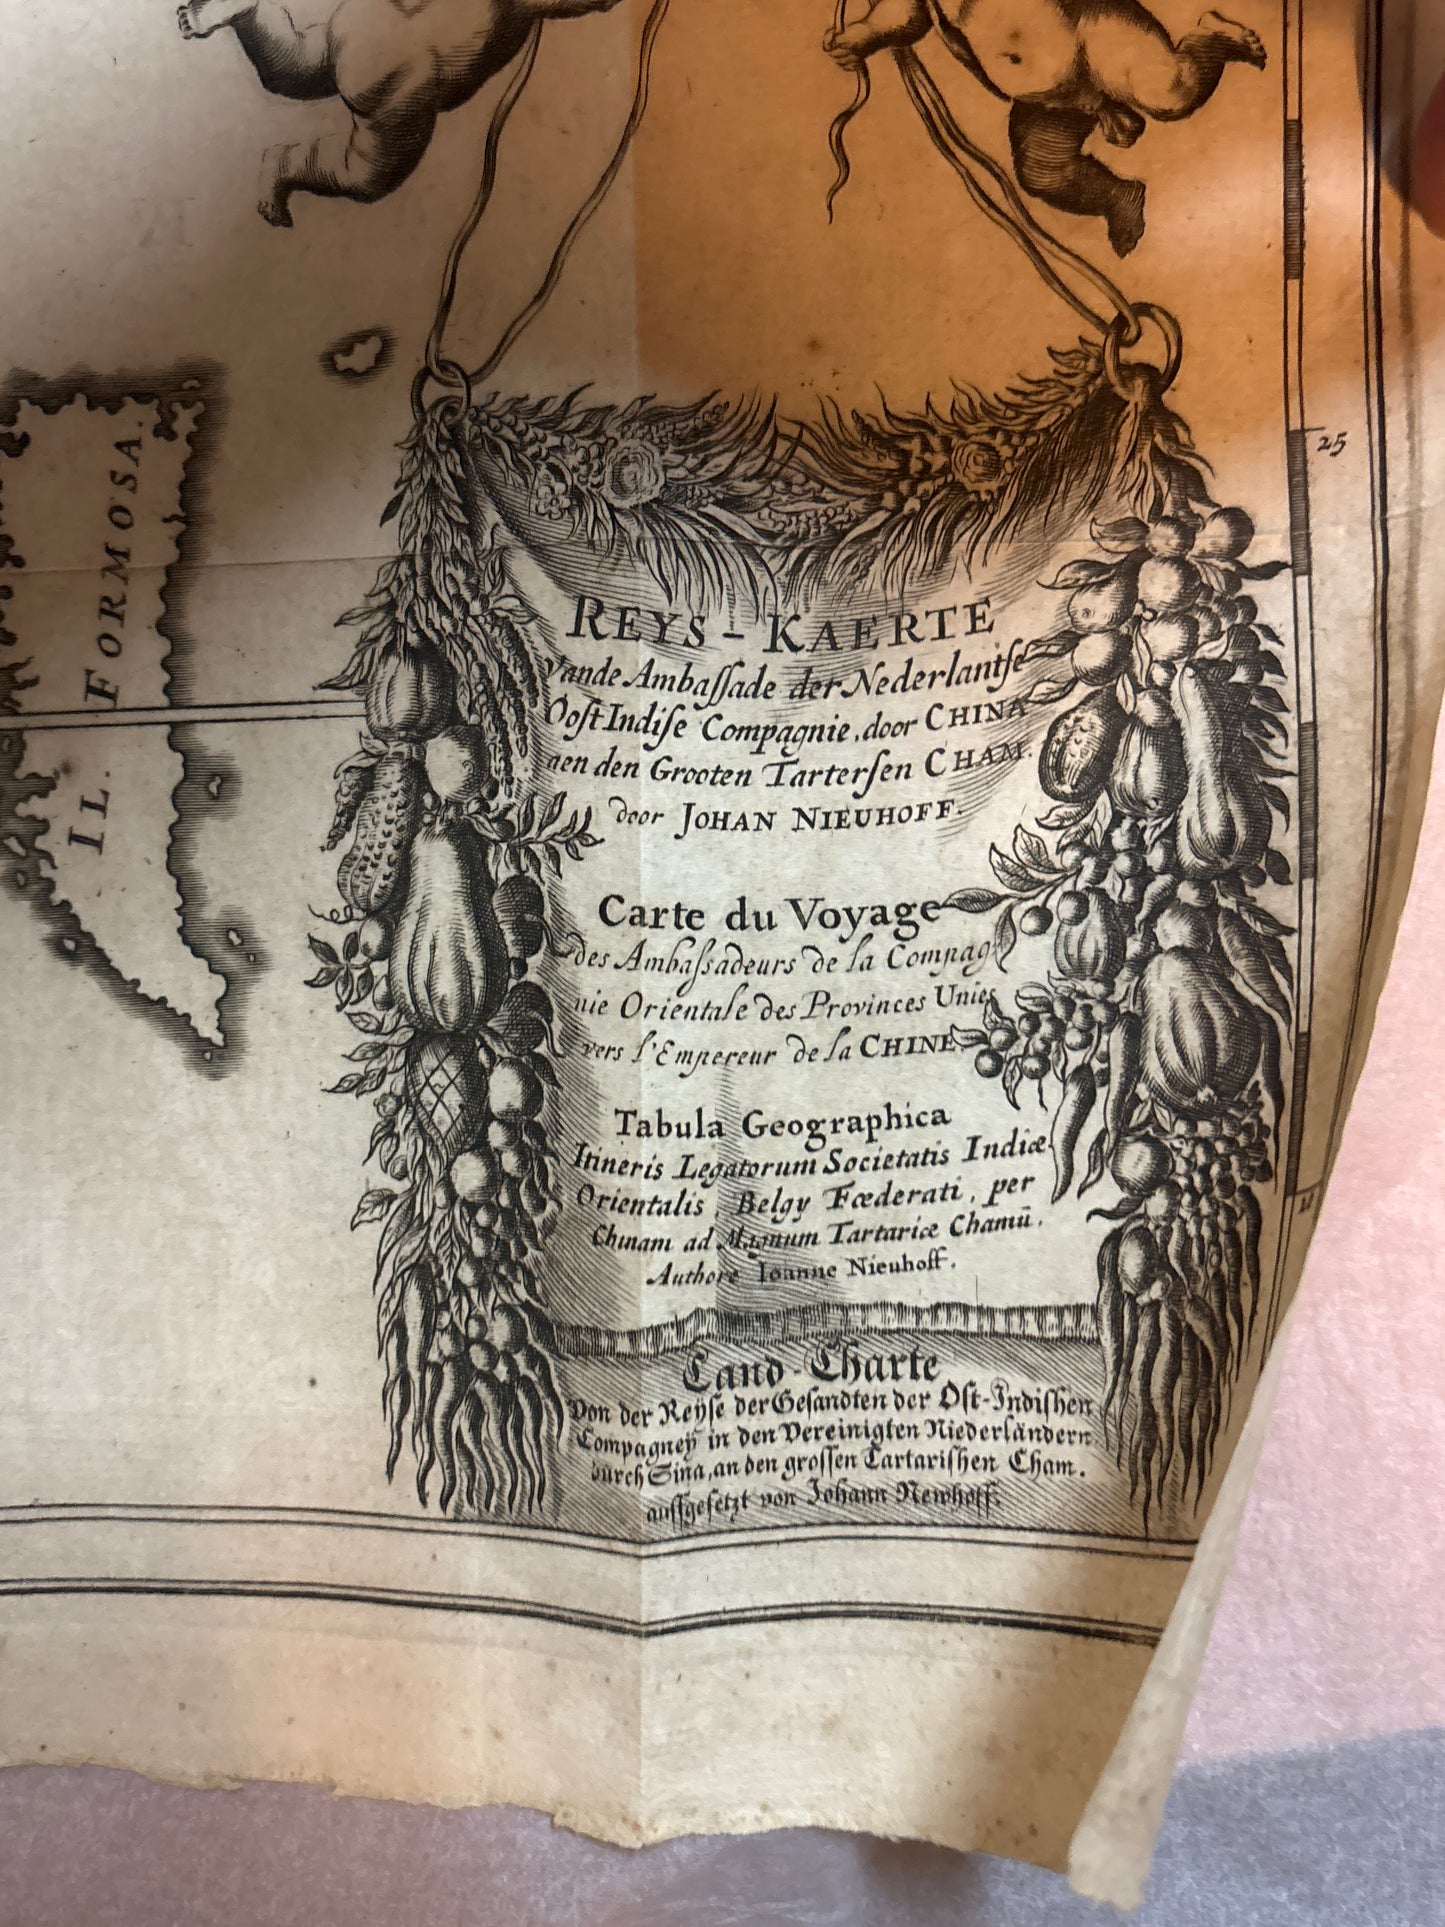 IL. FORMOSA.
25
REYS-KAERTE
Vande Ambaſſade der Nederlantſe
Ooſt Indiſe Compagnie, door CHINA
aen den Grooten Tarterſen CHAM.
door JOHAN NIEUHOFF.
Carte du Voyage
des Ambaſsadeurs de la Compag
nie Orientale des Provinces Unies
vers l'Empereur de la CHINE
Tabula Geographica
Itineris Legatorum Societatis Indiæ
Orientalis, Belgy Fœderati, per
Chinam ad Magnum Tartariæ Chamū.
Authore Ioanne Nieuhoff.
Land-Charte
Von der Reyſe der Geſandten der Oſt-Indiſhen
Compagney in den Vereinigten Niederländern
durch Sina, an den groſſen Tartariſhen Cham.
auffgeſetzt von Johann Newhoff.